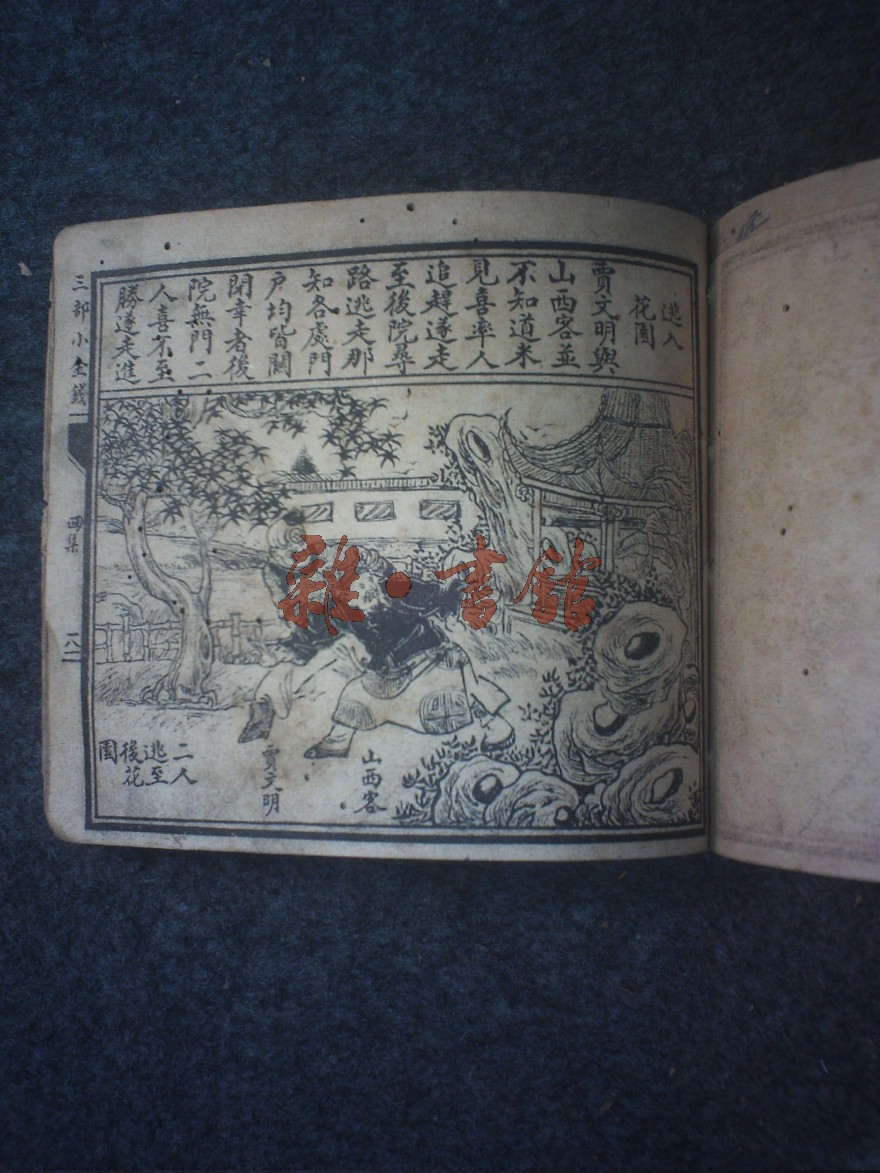 逃入
花園
賈文明與
山西客並
不知道米
見喜率人
追趕遂走
至後院尋
路逃走那
知各處門
戶均皆關
閉幸者後
院無門二
人喜不至
勝遂走進
二人
逃至
後花
園
賈文明
山西客
三部小金錢
四集
雜·書館